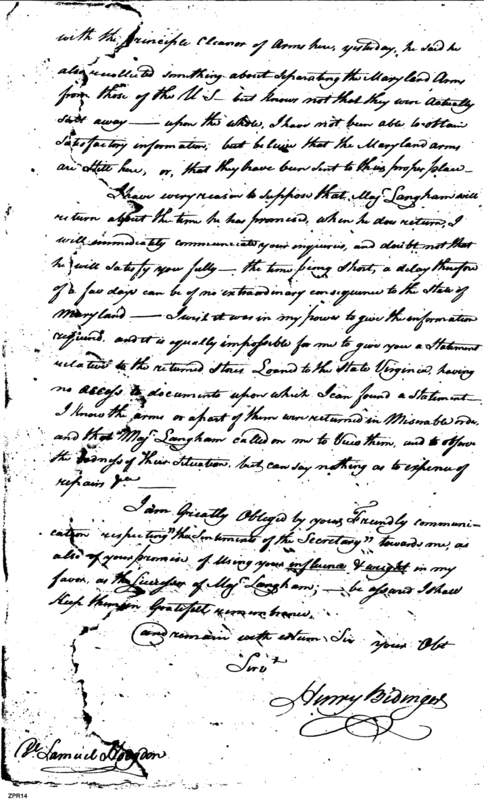 with the principle Cleanor of Arms here, yesterday, he said he
also recollected something about separating the Maryland Arms
from those of the U S— but knows not that they were actually
sent away — upon the whole, I have not been able to obtain
satisfactory information, but believe that the Maryland arms
are still here, or, that they have been sent to their proper place—
I have every reason to suppose that Majr Langham will
return about the time he has promised, when he does return, I
will immediately communicate your inquiries, and doubt not that
he will satisfy you fully — the time being short, a delay therefore
of a few days can be of no extraordinary consequence to the State of
Maryland — I wish it was in my power to give the information
required, and it is equally impossible for me to give you a Statement
relative to the returned Stores Loand to the State Virginia, having
no access to documents upon which I can found a Statement—
I know the arms or apart of them were returned in Miserable order,
and that Majr Langham called on me to View them, and to observe
the badness of their Situation, but can say nothing as to expence of
repairs &c —
I am Greatly Obliged by your Friendly communi-
cation respecting "the Sentiments of the Secretary" towards me, as
also of your promise of Using your influence & weight in my
favor, as the Successor of Majr Langham; — be assured I shall
Keep them in Gratefull remembrance,
and remain with esteem Sir your Obt
Servt
Henry Bidinger
Samuel Hodgdon
ZPR14